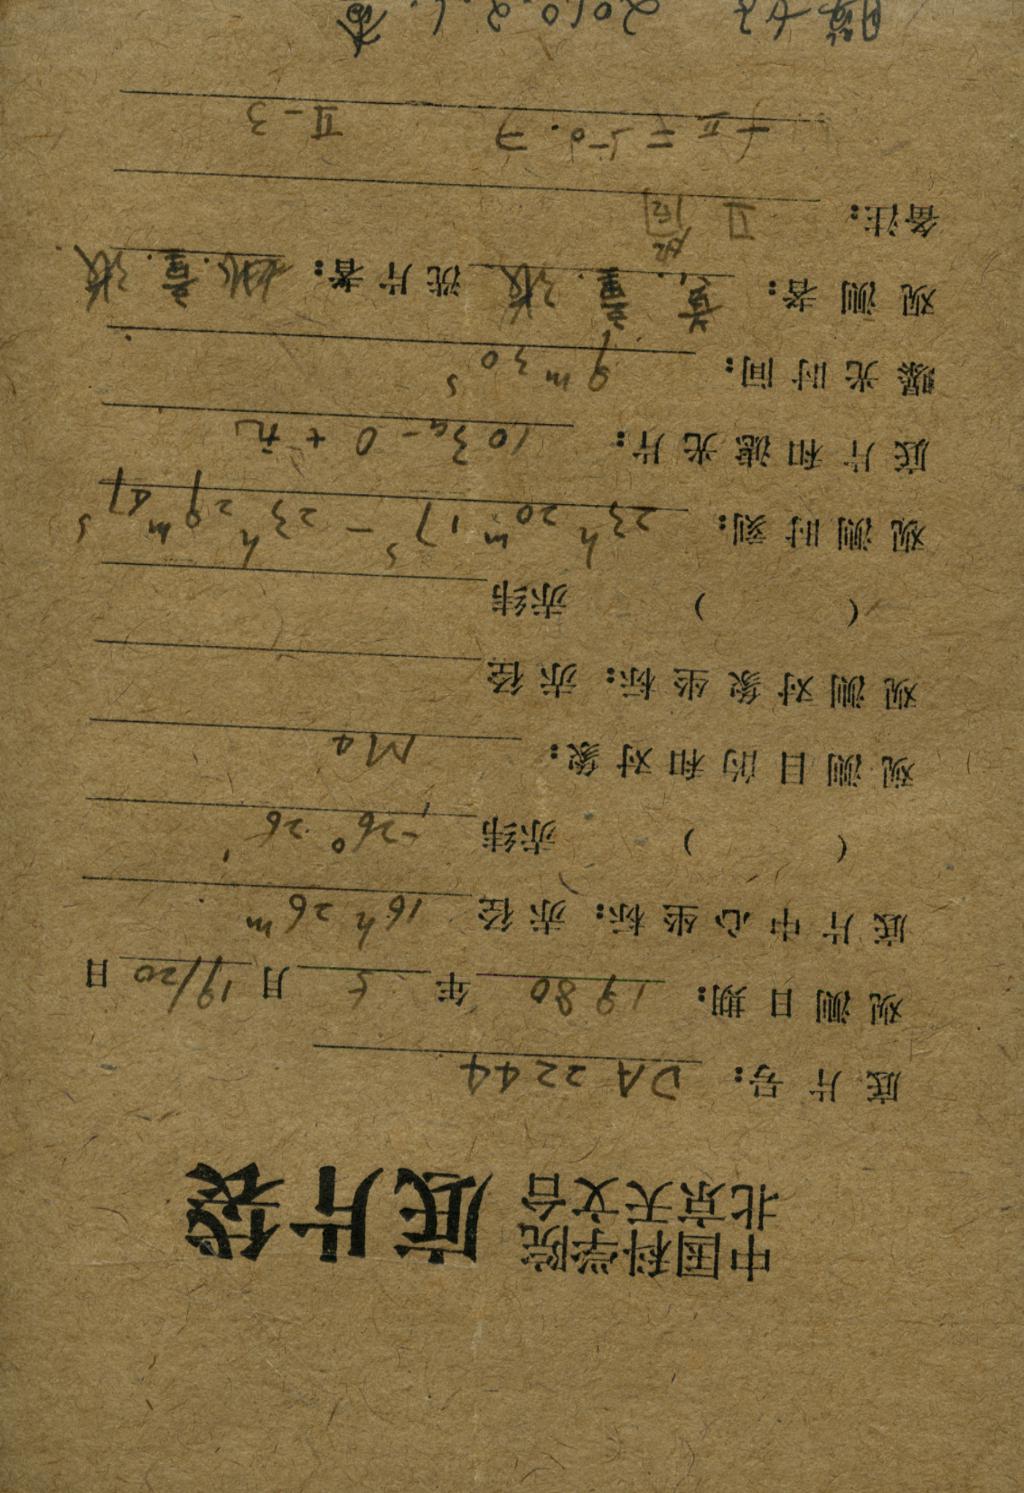 中国科学院
北京天文台 底片袋
底片号: DA 2244
观测日期: 1980 年 5 月 19/20 日
底片中心坐标: 赤径 16h 26m
( ) 赤纬 -26° 26'
观测目的和对象: M4
观测对象坐标: 赤径
( ) 赤纬
观测时刻: 23h 20m 17s - 23h 29m 47s
底片和滤光片: 103a-O + 无
曝光时间: 9m 30s
观测者: 黄. 童. 张 洗片者: 姚. 童. 张
备注: II
fII = 50.7 II-3
2010.2.1.